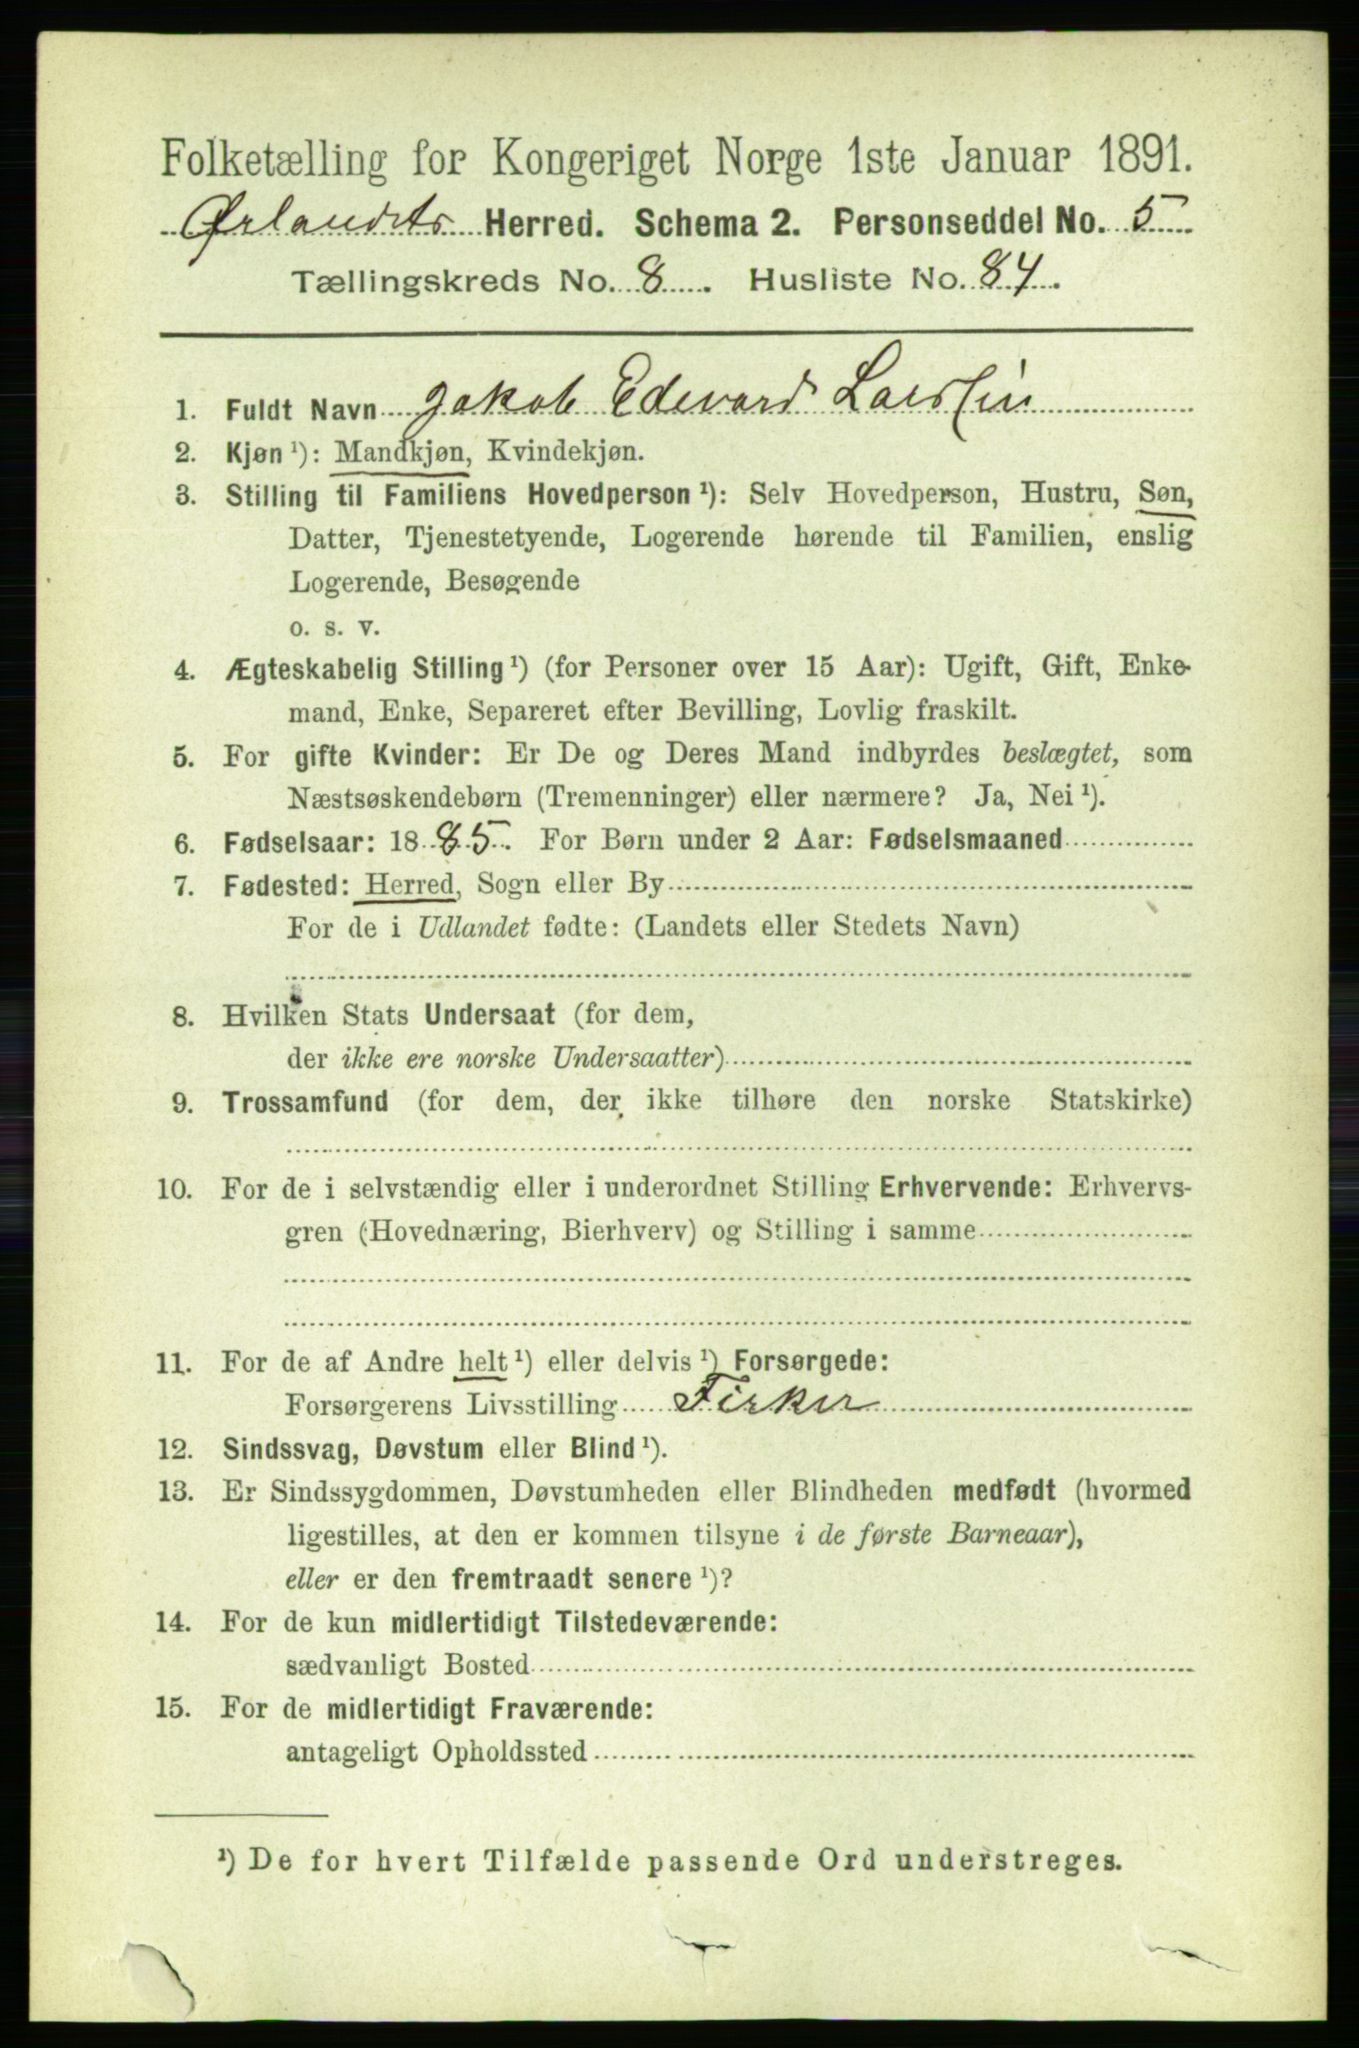 Folketælling for Kongeriget Norge 1ste Januar 1891.
Ørlandets Herred. Schema 2. Personseddel No. 5
Tællingskreds No. 8. Husliste No. 84.
1. Fuldt Navn Jakob Edevard Larssen
2. Kjøn ¹): Mandkjøn, Kvindekjøn.
3. Stilling til Familiens Hovedperson ¹): Selv Hovedperson, Hustru, Søn,
Datter, Tjenestetyende, Logerende hørende til Familien, enslig
Logerende, Besøgende
o. s. v.
4. Ægteskabelig Stilling ¹) (for Personer over 15 Aar): Ugift, Gift, Enke-
mand, Enke, Separeret efter Bevilling, Lovlig fraskilt.
5. For gifte Kvinder: Er De og Deres Mand indbyrdes beslægtet, som
Næstsøskendebørn (Tremenninger) eller nærmere? Ja, Nei ¹).
6. Fødselsaar: 1885. For Børn under 2 Aar: Fødselsmaaned
7. Fødested: Herred, Sogn eller By
For de i Udlandet fødte: (Landets eller Stedets Navn)
8. Hvilken Stats Undersaat (for dem,
der ikke ere norske Undersaatter)
9. Trossamfund (for dem, der ikke tilhøre den norske Statskirke)
10. For de i selvstændig eller i underordnet Stilling Erhvervende: Erhvervs-
gren (Hovednæring, Bierhverv) og Stilling i samme
11. For de af Andre helt ¹) eller delvis ¹) Forsørgede:
Forsørgerens Livsstilling Fisker
12. Sindssvag, Døvstum eller Blind ¹).
13. Er Sindssygdommen, Døvstumheden eller Blindheden medfødt (hvormed
ligestilles, at den er kommen tilsyne i de første Barneaar),
eller er den fremtraadt senere ¹)?
14. For de kun midlertidigt Tilstedeværende:
sædvanligt Bosted
15. For de midlertidigt Fraværende:
antageligt Opholdssted
¹) De for hvert Tilfælde passende Ord understreges.